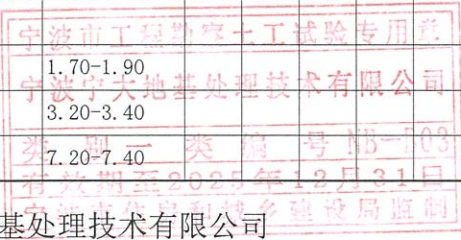 宁波市工程勘察土工试验专用章
1.70-1.90
宁波宁大地基处理技术有限公司
3.20-3.40
类别一类编号NB-503
7.20-7.40
有效期至2025年12月31日
建设局监制
基处理技术有限公司